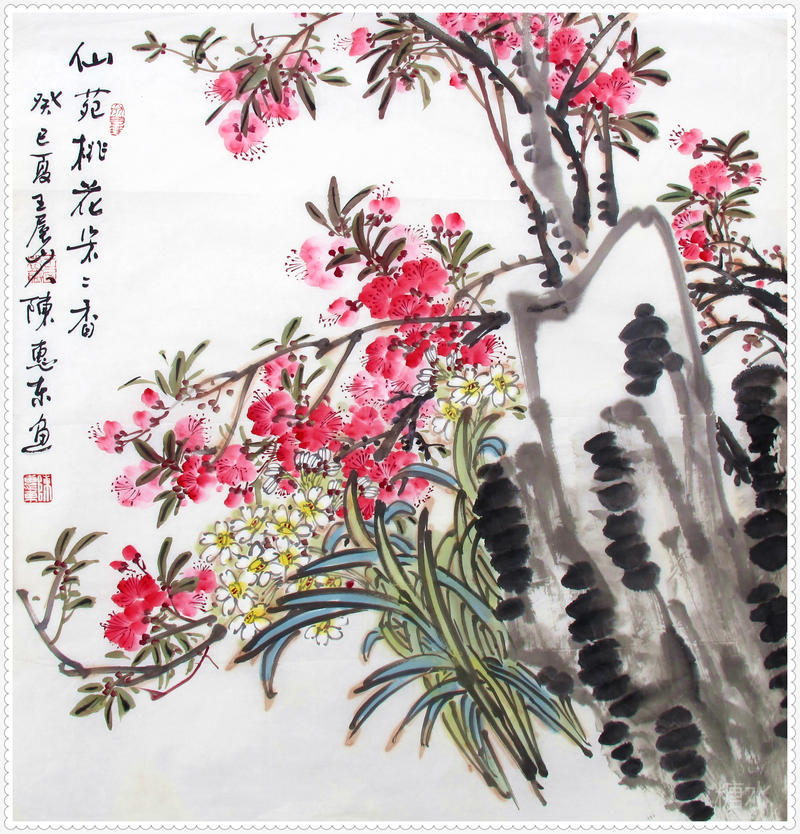 仙苑桃花朵〻香
癸巳夏王屋山人陳惠东画